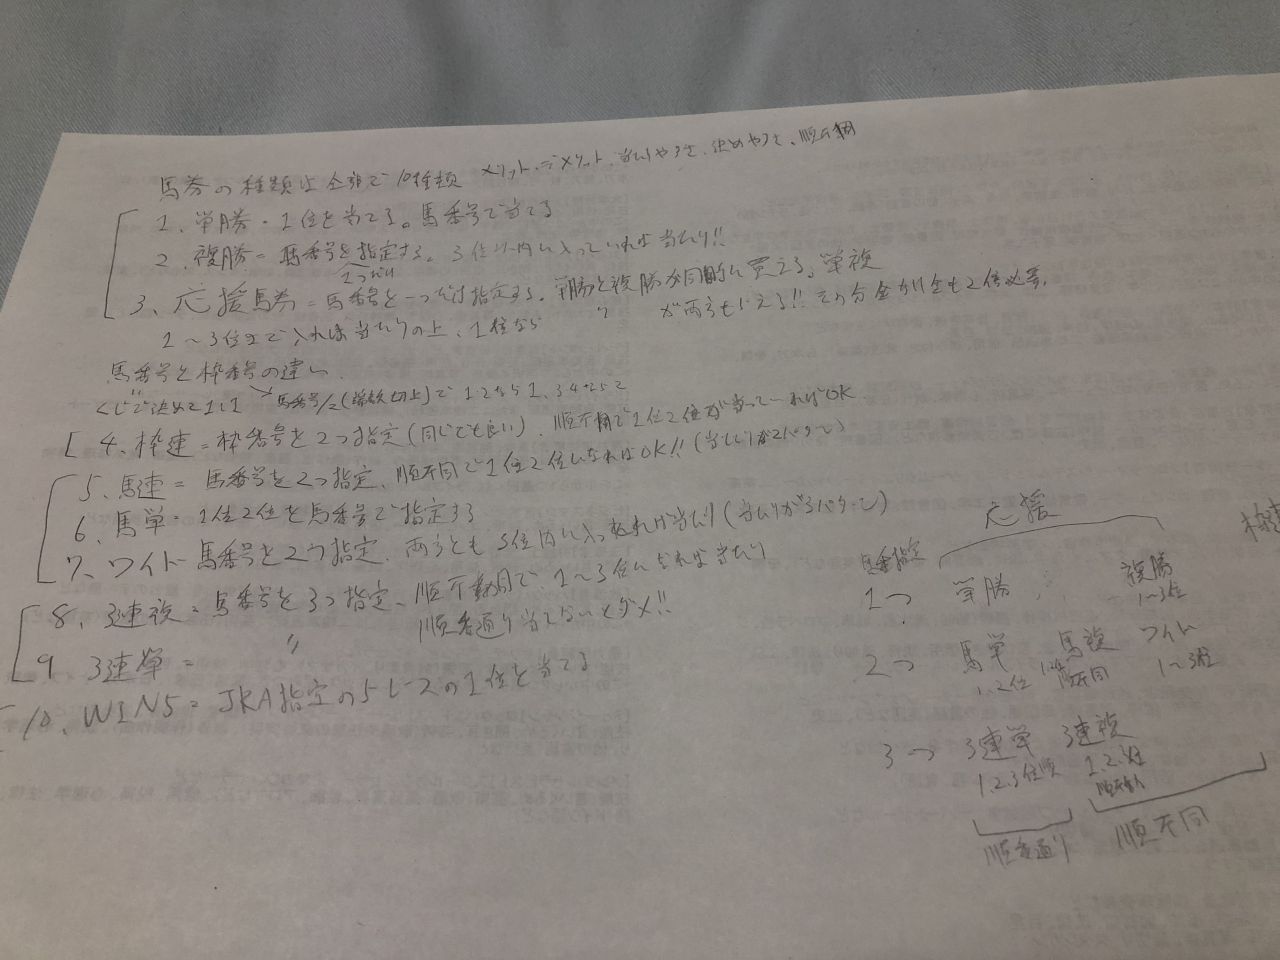 馬券の種類は全部で10種類 メリット・デメリット、当りやすさ、決めやすさ、順不同
1、単勝・1位を当てる。馬番号で当てる
2、複勝=馬番号を指定する。3位以内に入っていれば当たり!!
1つだけ
3、応援馬券=馬番号を一つだけ指定する。単勝と複勝が同時に買える、単複
1〜3位までに入れば当たりの上、1位なら 〃 が両方もらえる!! その分金かけ金も2倍必要。
馬番号と枠番号の違い
くじで決めている 馬番号/2(端数切上)で 1.2なら1、3.4なら2
4、枠連=枠番号を2つ指定(同じでも良い)、順不同で1位2位が当っていればOK
5、馬連=馬番号を2つ指定、順不同で1位2位になればOK!!(当たりが2パターン)
6、馬単=1位2位を馬番号で指定する
7、ワイド 馬番号を2つ指定、両方とも3位内に入れば当たり(当たりが3パターン)
8、3連複=馬番号を3つ指定、順不同で、1〜3位になれば当たり
9 3連単= 〃 順番通り当てないとダメ!!
10、WIN5=JRA指定の5レースの1位を当てる
応援
枠連
馬番指定
1つ 単勝 複勝
1〜3位
2つ 馬単 馬複 ワイド
1、2位 1.2位 順不同 1〜3位
3つ 3連単 3連複
1.2.3位順 1.2.3位
順不同
順番通り 順不同